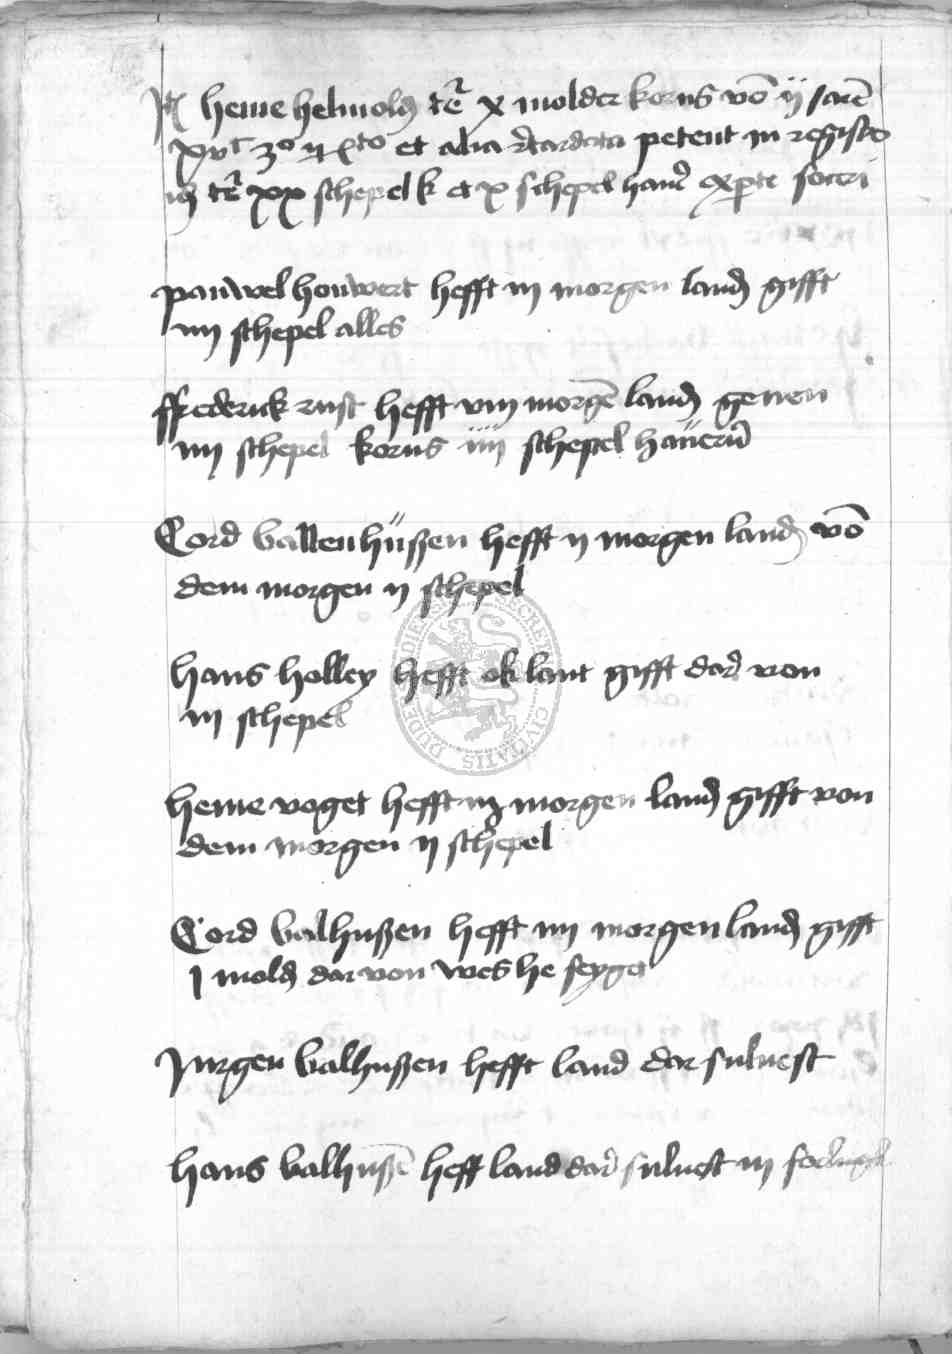 It heine helmold tē x molder korns vō ij iarē
xvᶜ 3º et 4to et alia retardata petent in registro
tē xx schepel k et x schepel hauē ex parte soceri
pauwel houwert hefft iij morgen land gifft
iiij schepel alles
ffrederick rust hefft viij morgē land geuen
iiij schepel korns iiij schepel hauern
Cord ballenhüssen hefft ij morgen land vō
dem morgen ij schepel
hans holley hefft ok lant gifft dar von
iij schepel
heine voget hefft iij morgen land gifft von
dem morgen ij schepel
Cord balhussen hefft iiij morgen land gifft
j mold dar von wes he seyget
Jurgen balhussen hefft land dar suluest
hans balhussē heff land dar suluest iij
SECRET CIVITATIS DUDER